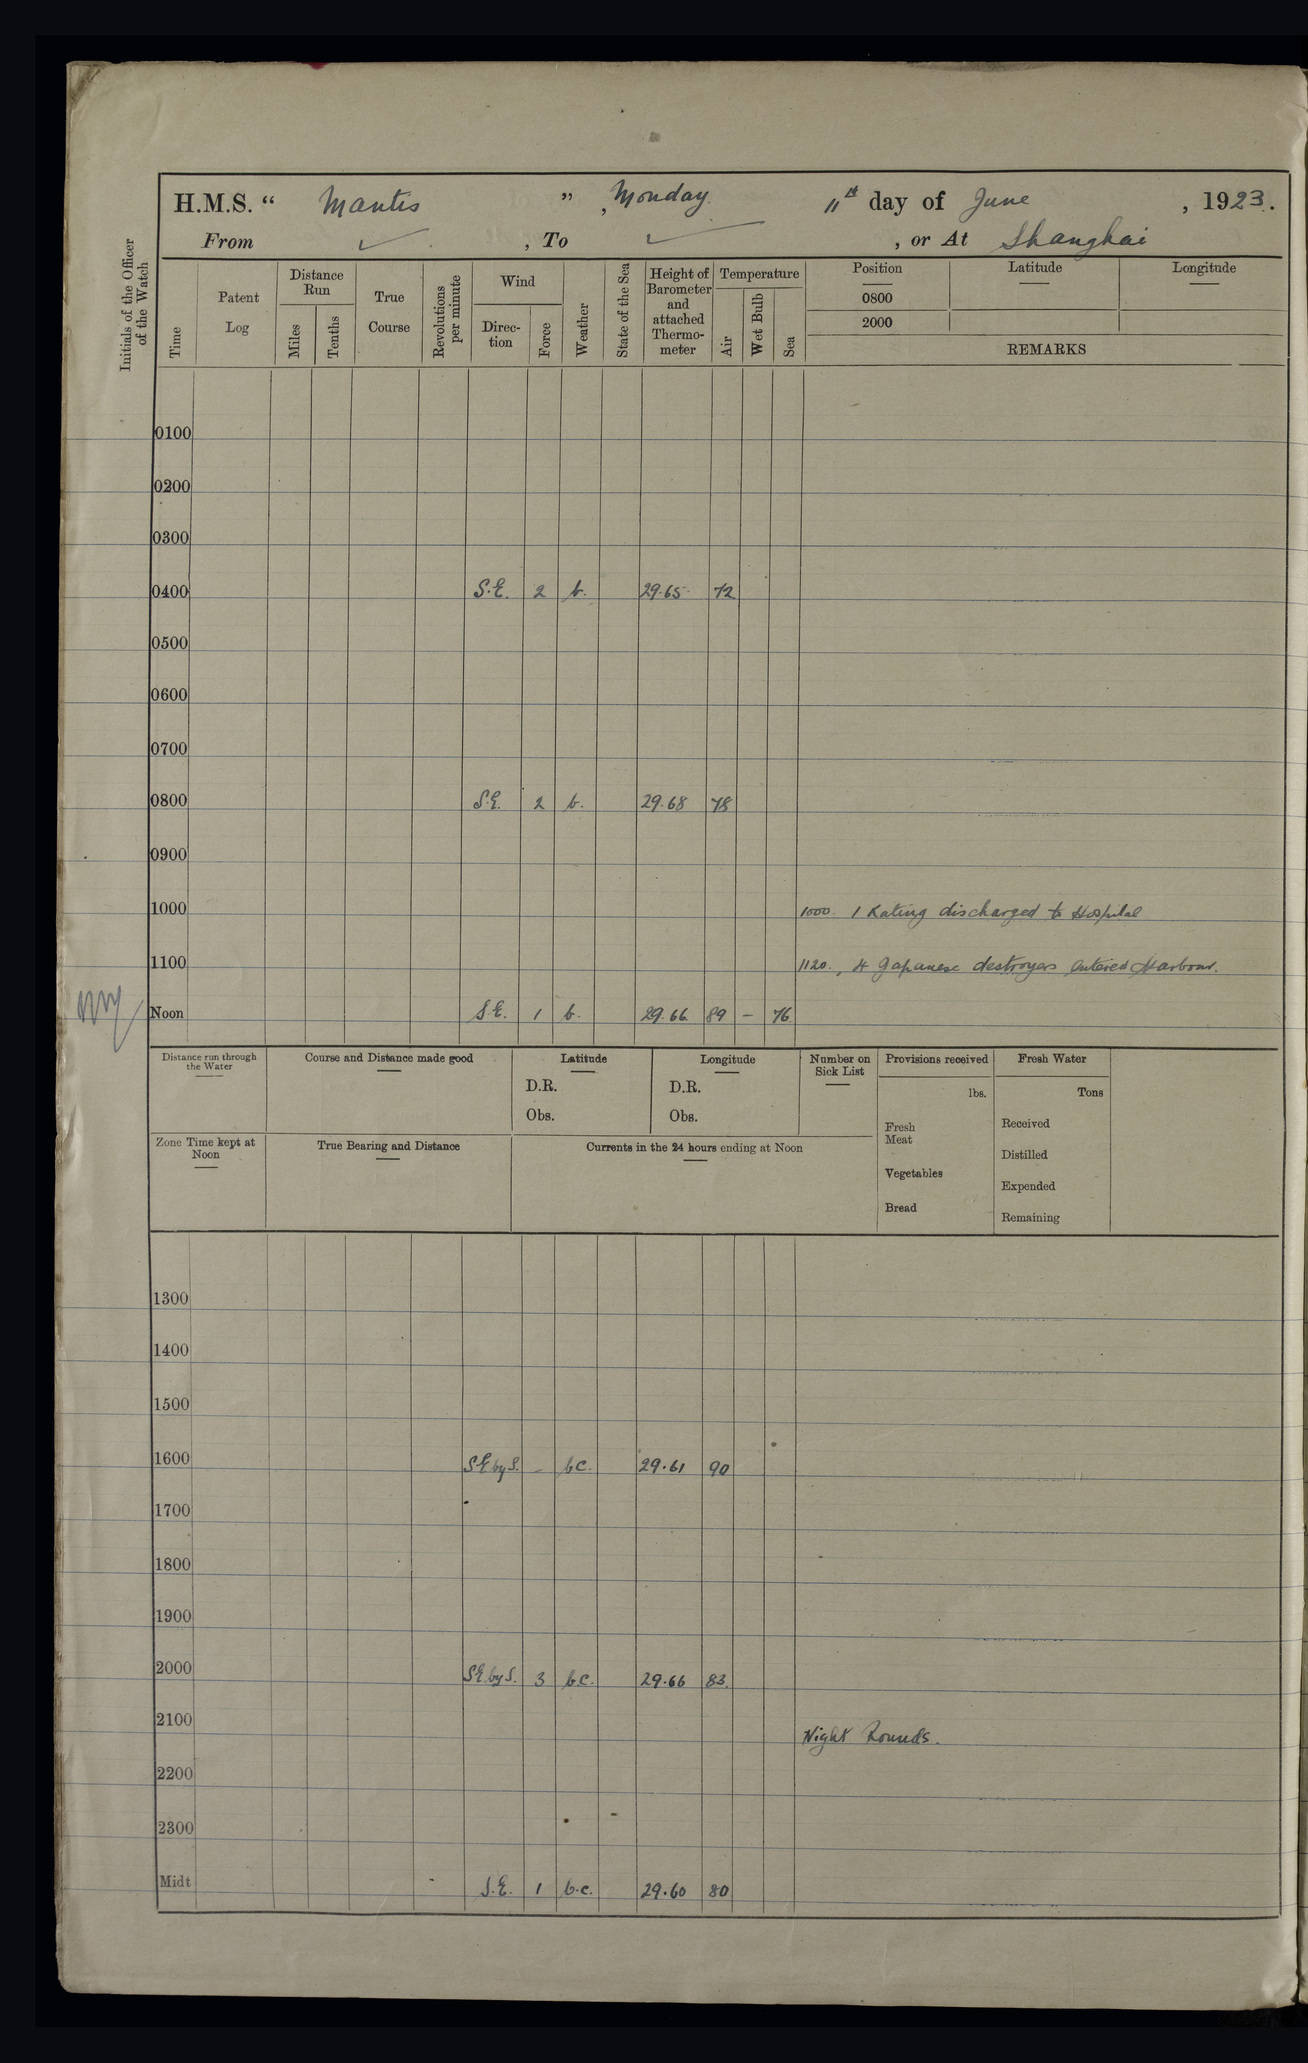 H.M.S. “ Mantis ” , Monday 11th day of June , 1923.
From ✓ , To ✓ , or At Shanghai
Initials of the Officer of the Watch
Time
Patent Log
Distance Run
Miles
Tenths
True Course
Revolutions per minute
Wind
Direc-tion
Force
Weather
State of the Sea
Height of Barometer and attached Thermo-meter
Temperature
Air
Wet Bulb
Sea
Position Latitude Longitude
0800
2000
REMARKS
0100
0200
0300
0400 S.E. 2 b. 29.65 72
0500
0600
0700
0800 S.E. 2 b. 29.68 78
0900
1000 1000. 1 Rating discharged to Hospital
1100 1120., 4 Japanese destroyers entered Harbour.
Noon S.E. 1 b. 29.66 89 – 76
Distance run through the Water
Course and Distance made good
Latitude
D.R.
Obs.
Longitude
D.R.
Obs.
Number on Sick List
Provisions received
lbs.
Fresh Meat
Vegetables
Bread
Fresh Water
Tons
Received
Distilled
Expended
Remaining
Zone Time kept at Noon
True Bearing and Distance
Currents in the 24 hours ending at Noon
1300
1400
1500
1600 SE by S. – bc. 29.61 90
1700
1800
1900
2000 SE by S. 3 b.c. 29.66 83.
2100 Night Rounds.
2200
2300
Midt S.E. 1 b.c. 29.60 80